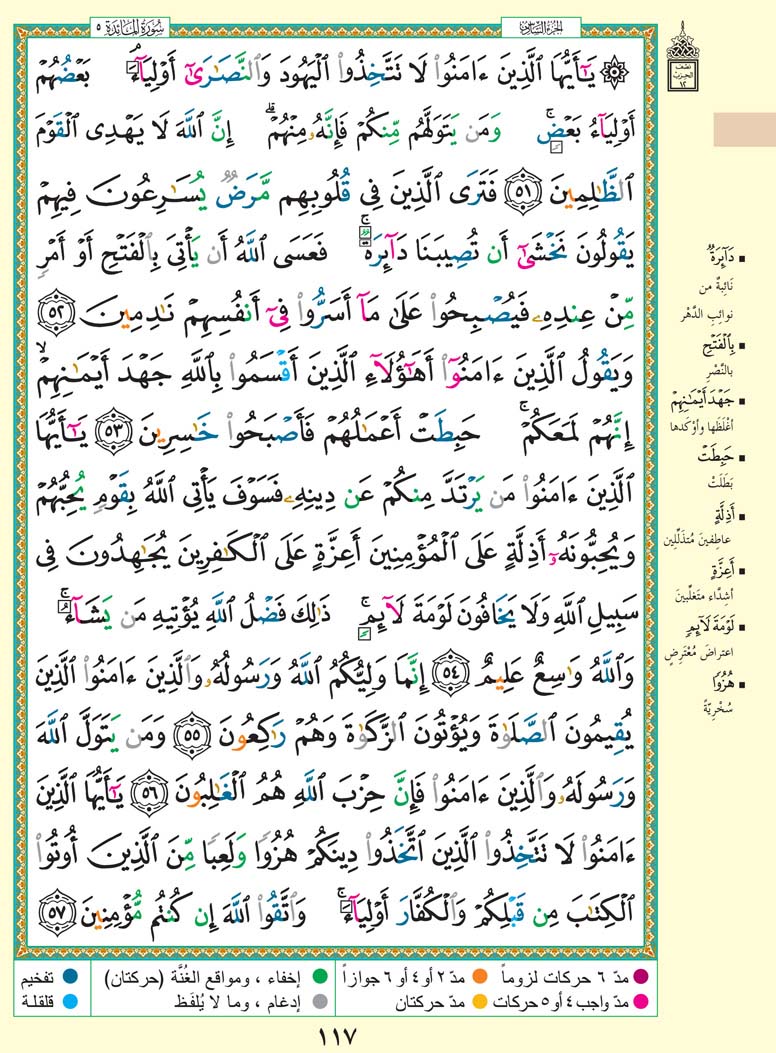 سُورَةُ المَائِدَة ٥
الجُزءُ السَّادِسُ
نصف الحزب ١٢
۞ يَـٰٓأَيُّهَا ٱلَّذِينَ ءَامَنُوا۟ لَا تَتَّخِذُوا۟ ٱلْيَهُودَ وَٱلنَّصَـٰرَىٰٓ أَوْلِيَآءَۘ بَعْضُهُمْ
أَوْلِيَآءُ بَعْضٍۚ وَمَن يَتَوَلَّهُم مِّنكُمْ فَإِنَّهُۥ مِنْهُمْۗ إِنَّ ٱللَّهَ لَا يَهْدِى ٱلْقَوْمَ
ٱلظَّـٰلِمِينَ ٥١ فَتَرَى ٱلَّذِينَ فِى قُلُوبِهِم مَّرَضٌ يُسَـٰرِعُونَ فِيهِمْ
يَقُولُونَ نَخْشَىٰٓ أَن تُصِيبَنَا دَآئِرَةٌۚ فَعَسَى ٱللَّهُ أَن يَأْتِىَ بِٱلْفَتْحِ أَوْ أَمْرٍ
مِّنْ عِندِهِۦ فَيُصْبِحُوا۟ عَلَىٰ مَآ أَسَرُّوا۟ فِىٓ أَنفُسِهِمْ نَـٰدِمِينَ ٥٢
وَيَقُولُ ٱلَّذِينَ ءَامَنُوٓا۟ أَهَـٰٓؤُلَآءِ ٱلَّذِينَ أَقْسَمُوا۟ بِٱللَّهِ جَهْدَ أَيْمَـٰنِهِمْۙ
إِنَّهُمْ لَمَعَكُمْۚ حَبِطَتْ أَعْمَـٰلُهُمْ فَأَصْبَحُوا۟ خَـٰسِرِينَ ٥٣ يَـٰٓأَيُّهَا
ٱلَّذِينَ ءَامَنُوا۟ مَن يَرْتَدَّ مِنكُمْ عَن دِينِهِۦ فَسَوْفَ يَأْتِى ٱللَّهُ بِقَوْمٍ يُحِبُّهُمْ
وَيُحِبُّونَهُۥٓ أَذِلَّةٍ عَلَى ٱلْمُؤْمِنِينَ أَعِزَّةٍ عَلَى ٱلْكَـٰفِرِينَ يُجَـٰهِدُونَ فِى
سَبِيلِ ٱللَّهِ وَلَا يَخَافُونَ لَوْمَةَ لَآئِمٍۚ ذَٰلِكَ فَضْلُ ٱللَّهِ يُؤْتِيهِ مَن يَشَآءُۚ
وَٱللَّهُ وَٰسِعٌ عَلِيمٌ ٥٤ إِنَّمَا وَلِيُّكُمُ ٱللَّهُ وَرَسُولُهُۥ وَٱلَّذِينَ ءَامَنُوا۟ ٱلَّذِينَ
يُقِيمُونَ ٱلصَّلَوٰةَ وَيُؤْتُونَ ٱلزَّكَوٰةَ وَهُمْ رَٰكِعُونَ ٥٥ وَمَن يَتَوَلَّ ٱللَّهَ
وَرَسُولَهُۥ وَٱلَّذِينَ ءَامَنُوا۟ فَإِنَّ حِزْبَ ٱللَّهِ هُمُ ٱلْغَـٰلِبُونَ ٥٦ يَـٰٓأَيُّهَا ٱلَّذِينَ
ءَامَنُوا۟ لَا تَتَّخِذُوا۟ ٱلَّذِينَ ٱتَّخَذُوا۟ دِينَكُمْ هُزُوًا وَلَعِبًا مِّنَ ٱلَّذِينَ أُوتُوا۟
ٱلْكِتَـٰبَ مِن قَبْلِكُمْ وَٱلْكُفَّارَ أَوْلِيَآءَۚ وَٱتَّقُوا۟ ٱللَّهَ إِن كُنتُم مُّؤْمِنِينَ ٥٧
▪ دَآئِرَةٌ
نَائِبةٌ من
نوائبِ الدَّهْرِ
▪ بِٱلْفَتْحِ
بالنَّصْرِ
▪ جَهْدَ أَيْمَـٰنِهِمْ
أَغْلَظَها وأوْكَدها
▪ حَبِطَتْ
بَطَلَتْ
▪ أَذِلَّةٍ
عاطِفينَ مُتذَلِّلين
▪ أَعِزَّةٍ
أشِدَّاء متَغَلِّبينَ
▪ لَوْمَةَ لَآئِمٍ
اعتراضَ مُعْتَرِضٍ
▪ هُزُوًا
سُخْرِيَّةً
مدّ ٦ حركات لزوماً ● مدّ ٢ أو ٤ أو ٦ جوازاً ● إخفاء ، ومواقع الغُنَّة (حركتان) ● تفخيم
مدّ واجب ٤ أو ٥ حركات ● مدّ حركتان ● إدغام ، وما لا يُلفَظ ● قلقلة
١١٧